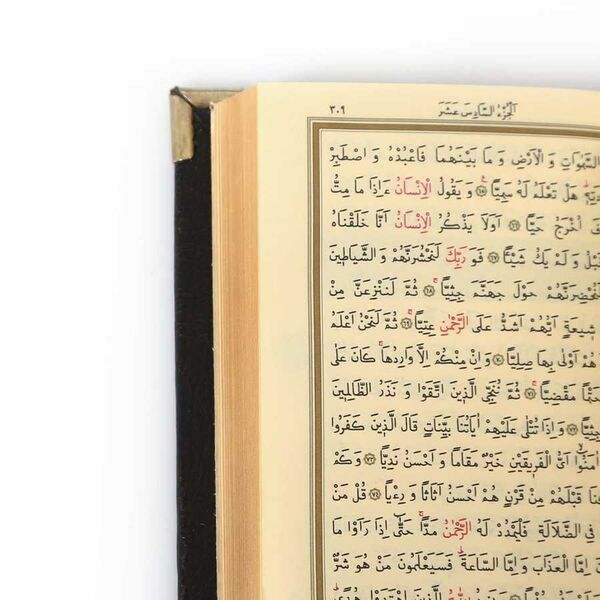 اَلْجُزْءُ السَّادِسَ عَشَرَ
٣٠٩
السَّمٰوَاتِ وَ الْاَرْضِ وَ مَا بَيْنَهُمَا فَاعْبُدْهُ وَ اصْطَبِرْ
هَلْ تَعْلَمُ لَهُ سَمِيًّا ﴿٦٥﴾ وَ يَقُولُ الْاِنْسَانُ ءَاِذَا مَا مِتُّ
فَ اُخْرَجُ حَيًّا ﴿٦٦﴾ اَوَلَا يَذْكُرُ الْاِنْسَانُ اَنَّا خَلَقْنَاهُ
قَبْلُ وَ لَمْ يَكُ شَيْئًا ﴿٦٧﴾ فَوَ رَبِّكَ لَنَحْشُرَنَّهُمْ وَ الشَّيَاطٖينَ
لَنُحْضِرَنَّهُمْ حَوْلَ جَهَنَّمَ جِثِيًّا ﴿٦٨﴾ ثُمَّ لَنَنْزِعَنَّ مِنْ
شٖيعَةٍ اَيُّهُمْ اَشَدُّ عَلَى الرَّحْمٰنِ عِتِيًّا ﴿٦٩﴾ ثُمَّ لَنَحْنُ اَعْلَمُ
هُمْ اَوْلٰى بِهَا صِلِيًّا ﴿٧٠﴾ وَ اِنْ مِنْكُمْ اِلَّا وَارِدُهَا كَانَ عَلٰى
حَتْمًا مَقْضِيًّا ﴿٧١﴾ ثُمَّ نُنَجِّى الَّذٖينَ اتَّقَوْا وَ نَذَرُ الظَّالِمٖينَ
جِثِيًّا ﴿٧٢﴾ وَ اِذَا تُتْلٰى عَلَيْهِمْ اٰيَاتُنَا بَيِّنَاتٍ قَالَ الَّذٖينَ كَفَرُوا
اٰمَنُوا اَىُّ الْفَرٖيقَيْنِ خَيْرٌ مَقَامًا وَ اَحْسَنُ نَدِيًّا ﴿٧٣﴾ وَ كَمْ
قَبْلَهُمْ مِنْ قَرْنٍ هُمْ اَحْسَنُ اَثَاثًا وَ رِءْيًا ﴿٧٤﴾ قُلْ مَنْ
فِى الضَّلَالَةِ فَلْيَمْدُدْ لَهُ الرَّحْمٰنُ مَدًّا حَتّٰى اِذَا رَاَوْا مَا
اِمَّا الْعَذَابَ وَ اِمَّا السَّاعَةَ فَسَيَعْلَمُونَ مَنْ هُوَ شَرٌّ